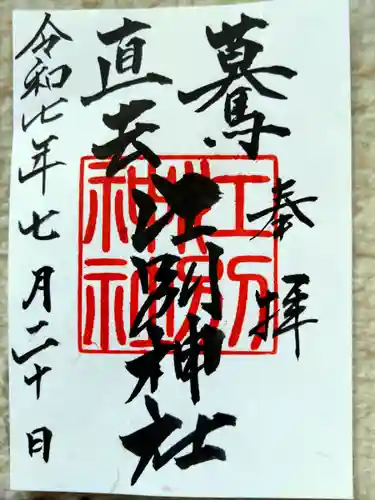 奉拝
驀
直去
江別神社
令和七年七月二十日
江別
神社